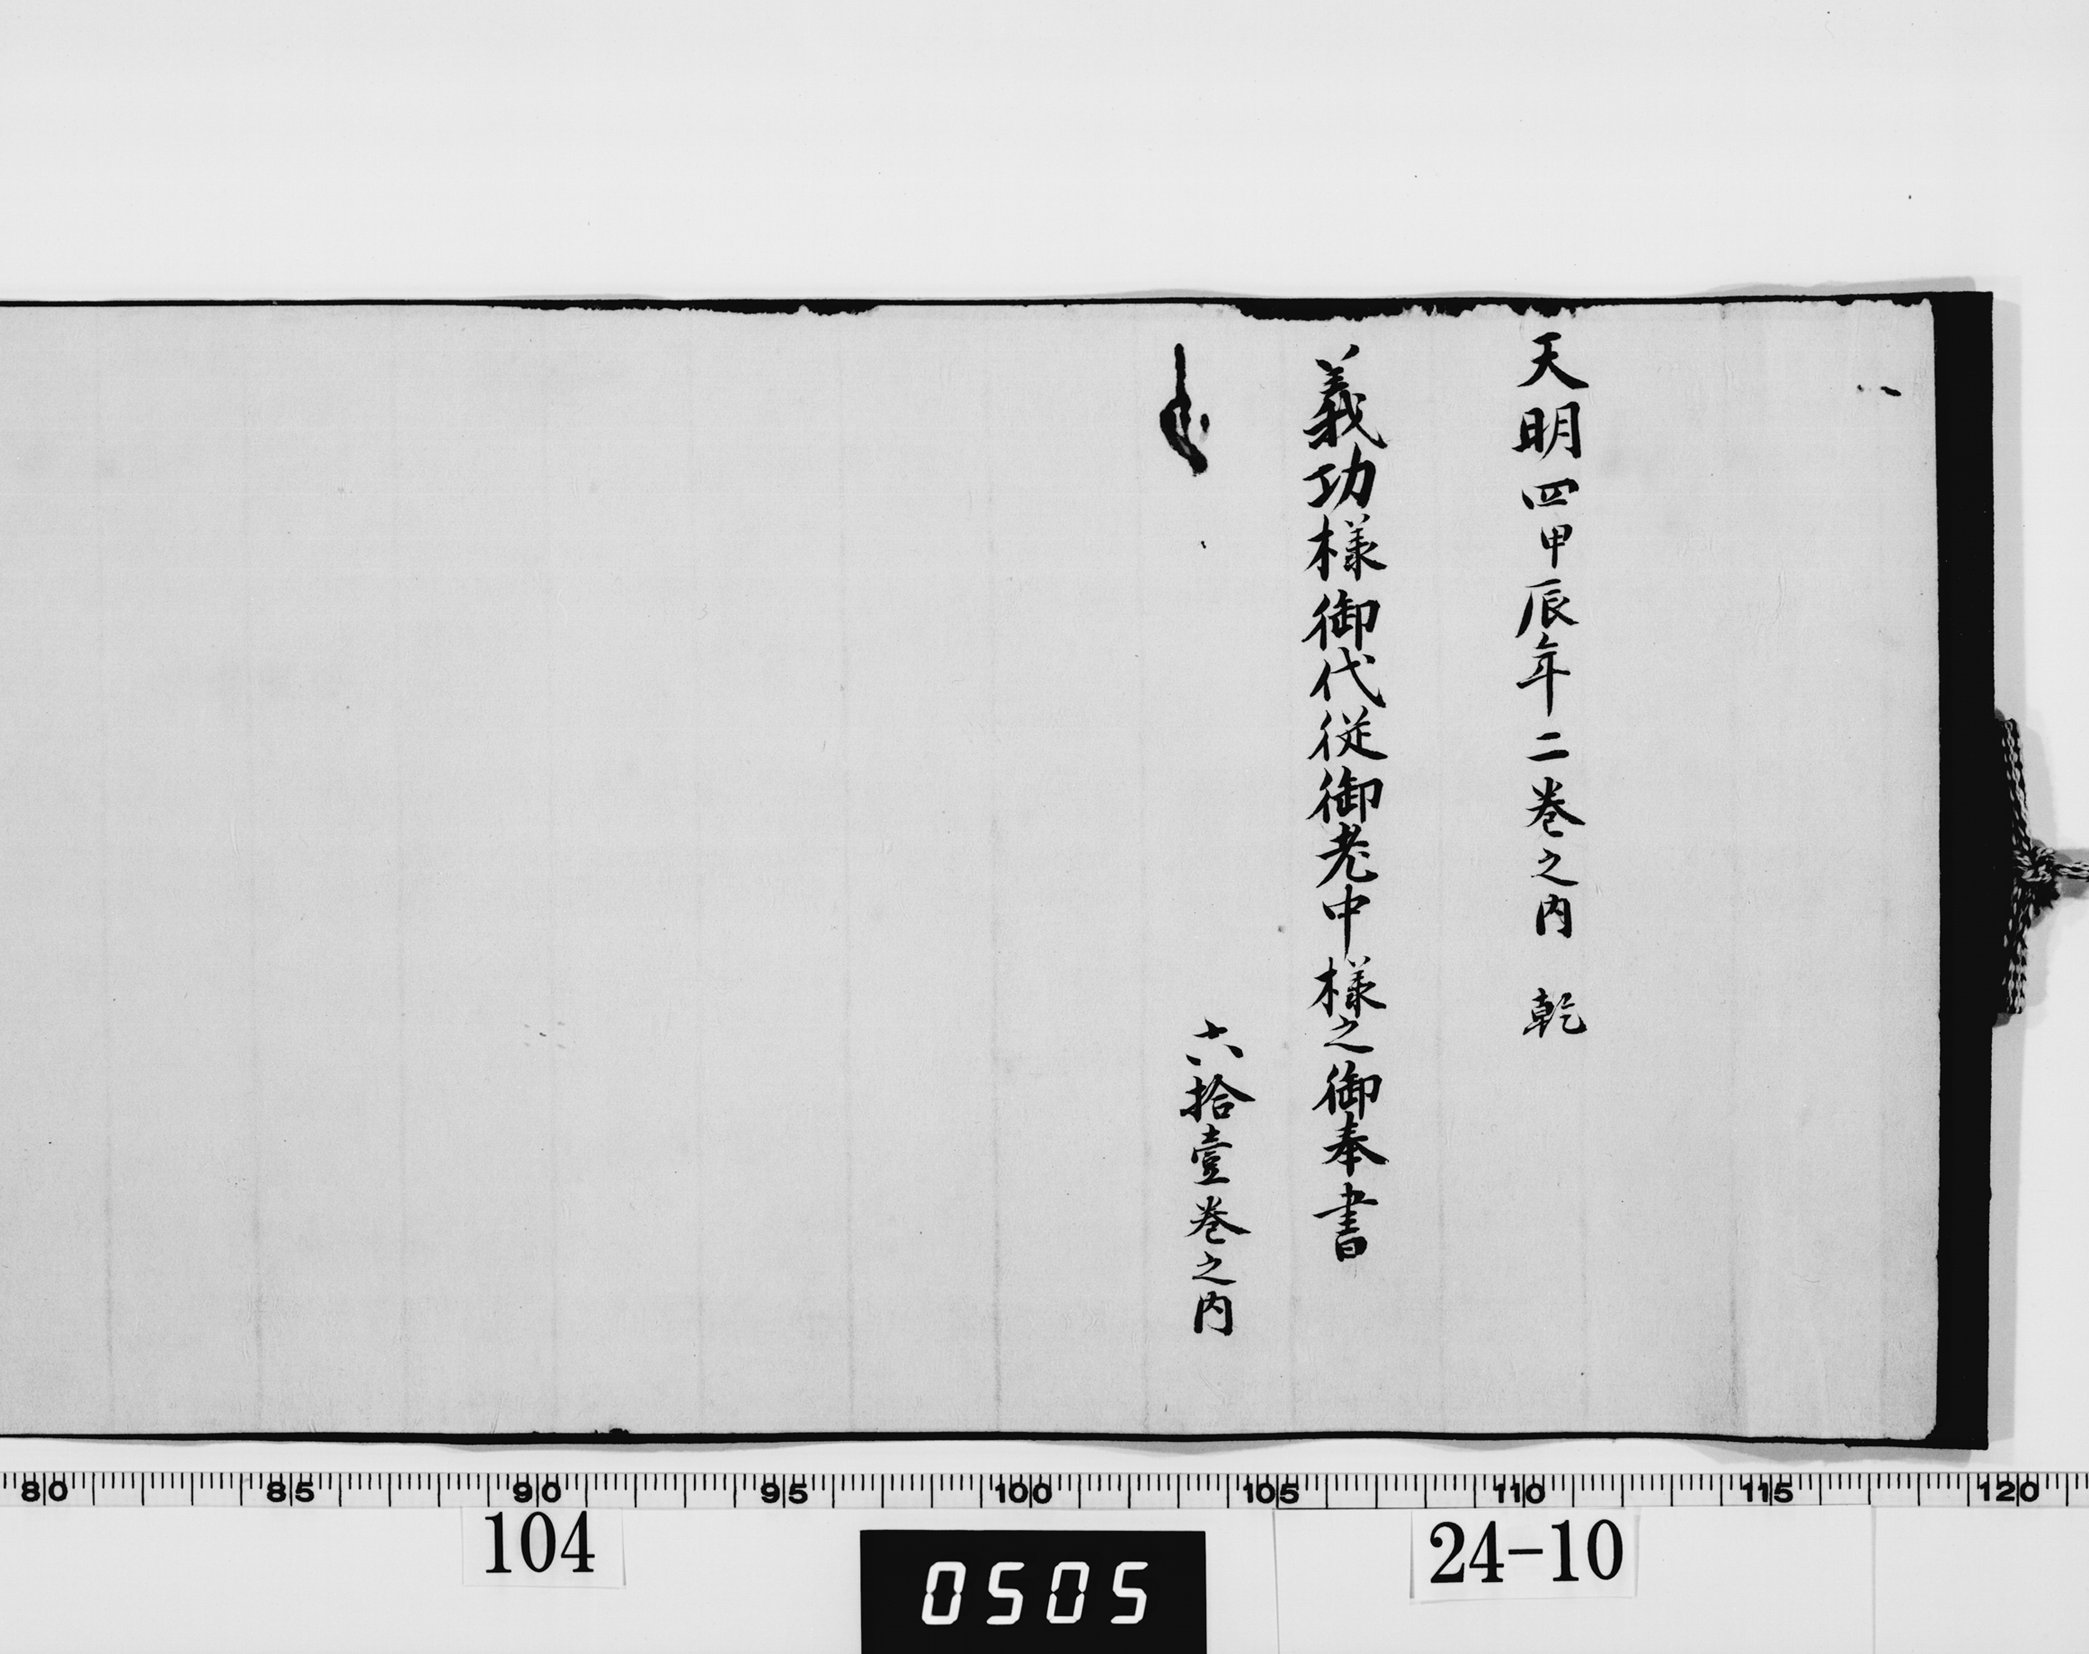 天明四甲辰年二巻之内　乾
義功様御代従御老中様之御奉書
六拾壹巻之内
80 85 90 95 100 105 110 115 120
104
0505
24-10